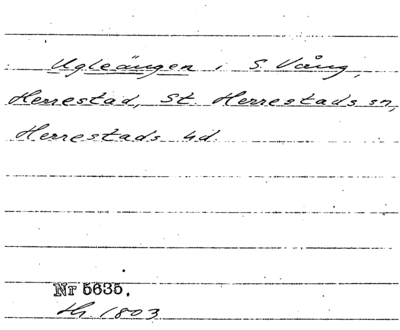 Ugleängen i S. Vång,
Herrestad, St. Herrestads sn,
Herrestads hd.
Nr 5635.
Hj 1803